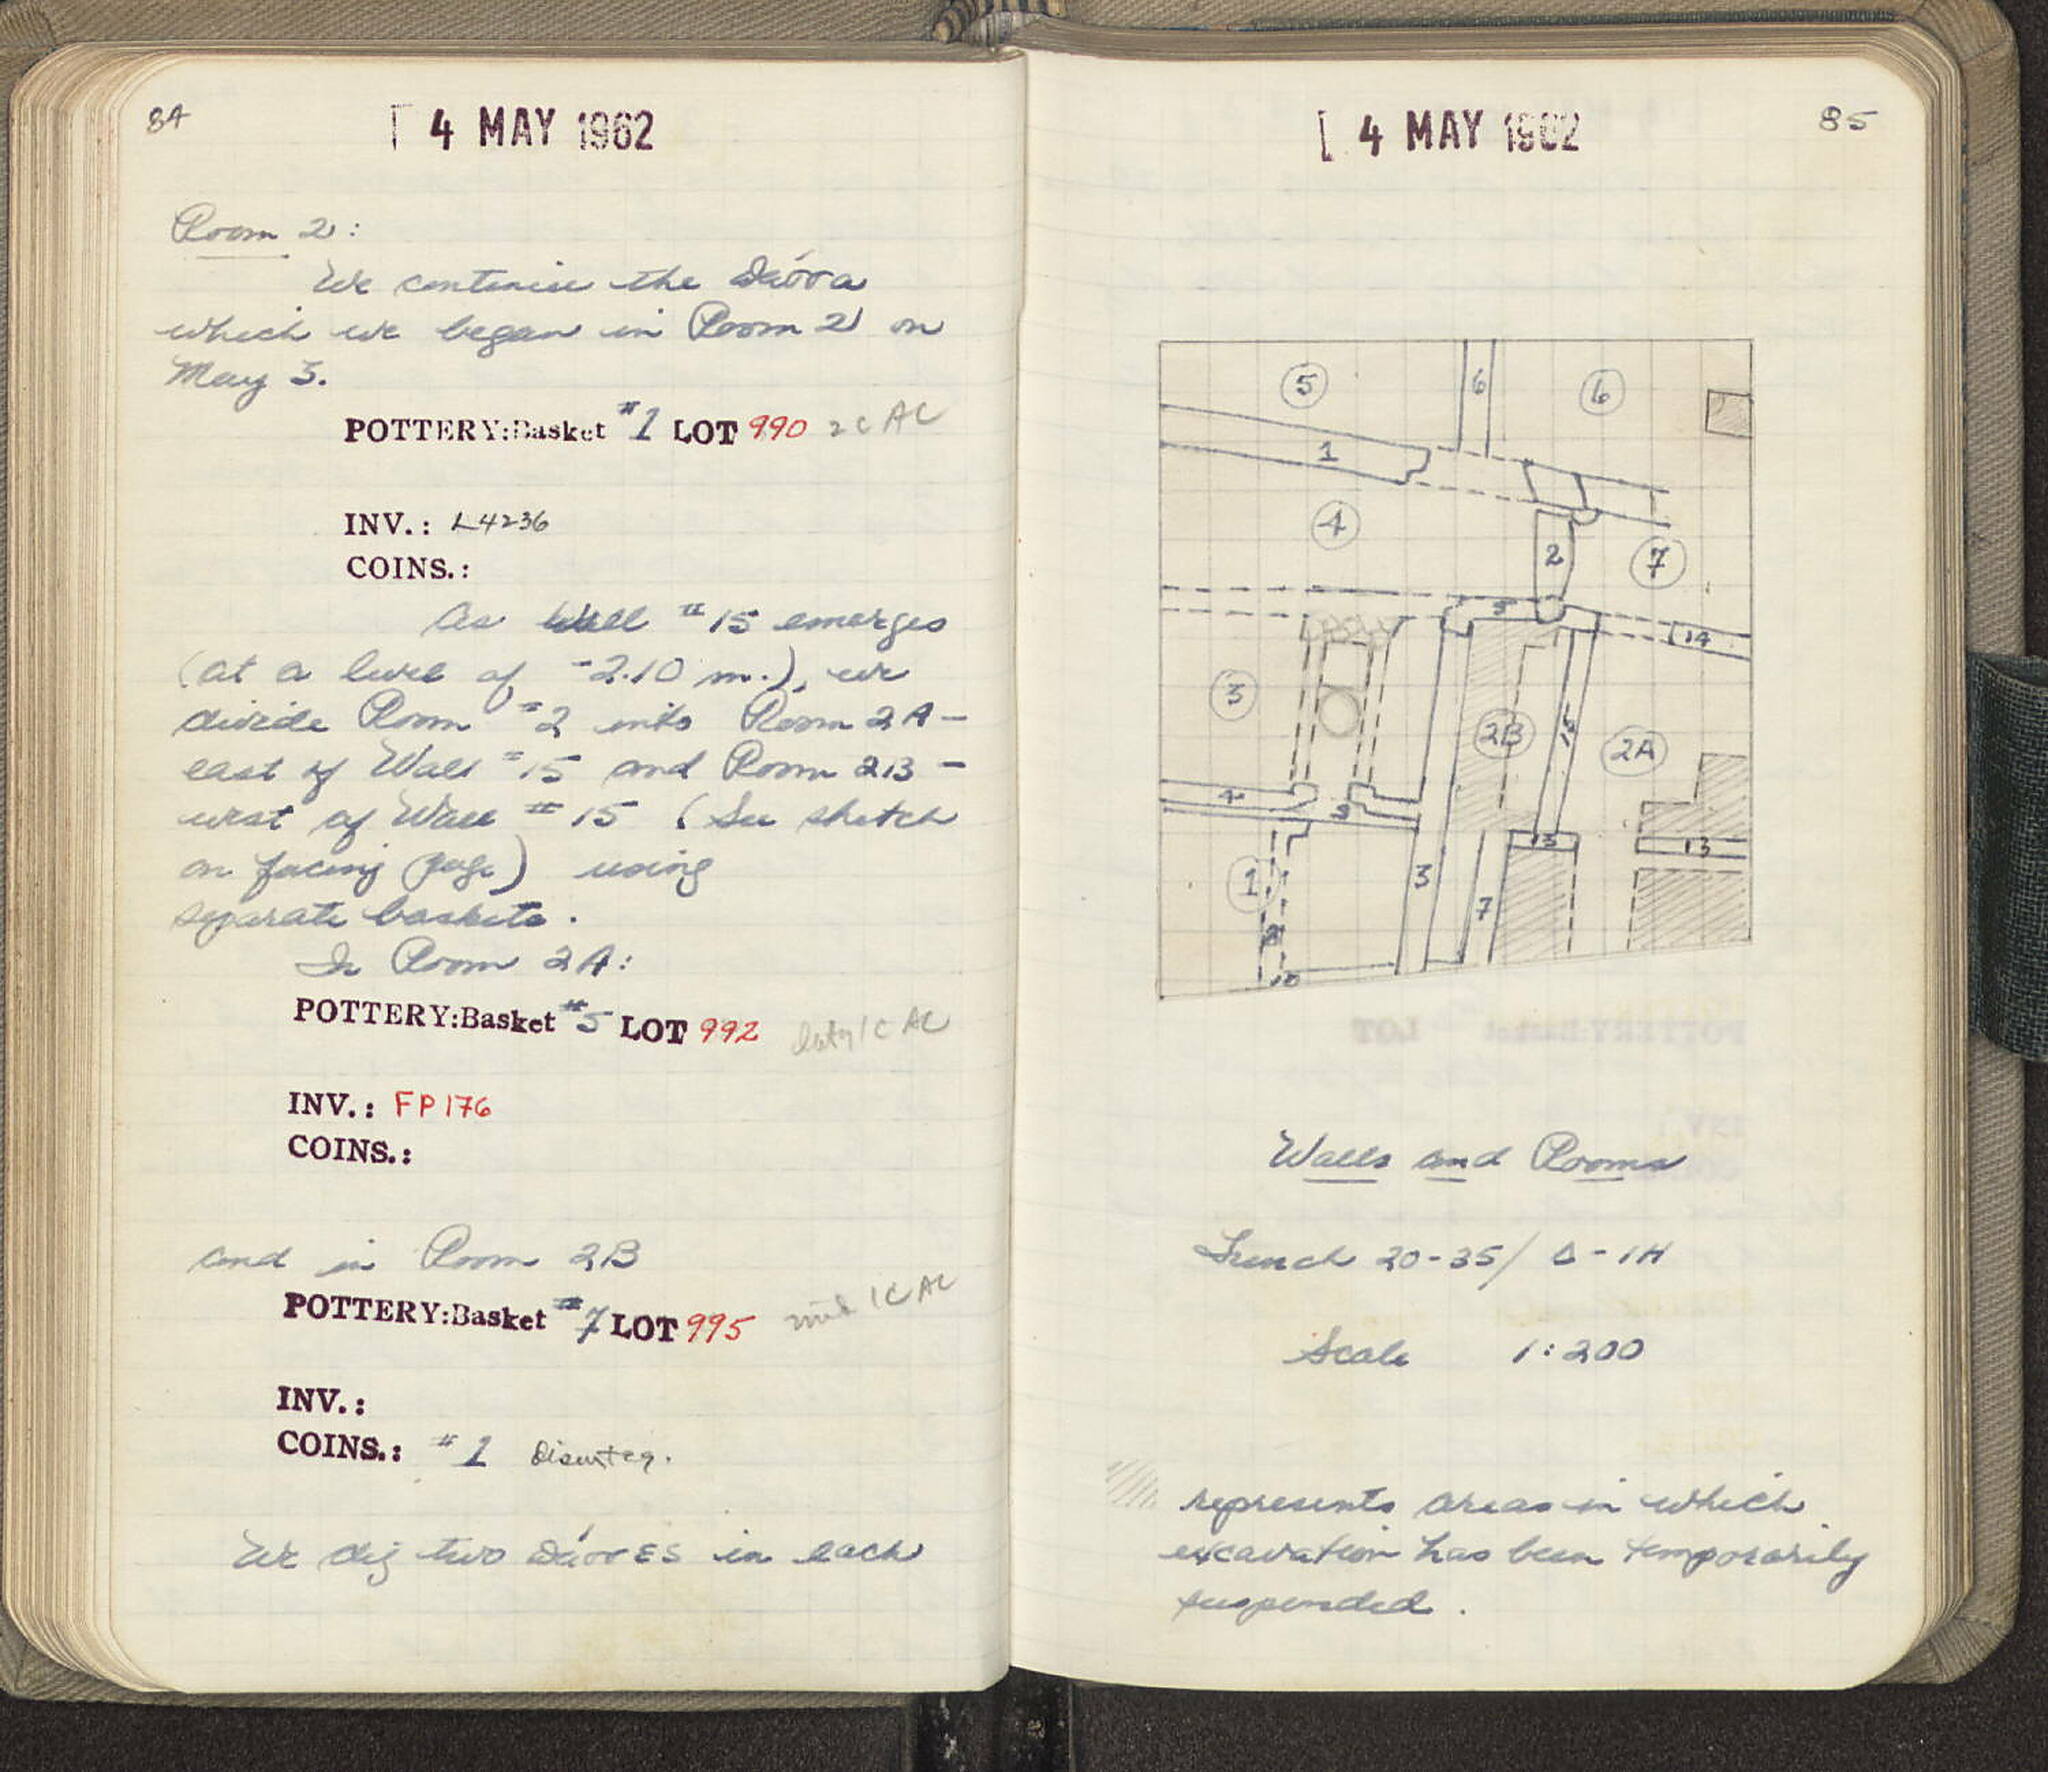 84
4 MAY 1962
Room 2:
We continue the πάσσα
which we began in Room 2 on
May 3.
POTTERY:Basket #1 LOT 990 2C AC
INV.: L4236
COINS.:
As Wall #15 emerges
(at a level of -2.10 m.), we
divide Room #2 into Room 2A -
east of Wall #15 and Room 2B -
west of Wall #15 (See sketch
on facing page) using
separate baskets.
In Room 2A:
POTTERY:Basket #5 LOT 992 1C AC
INV.: FP176
COINS.:
and in Room 2B
POTTERY:Basket #7 LOT 995 mid 1C AC
INV.:
COINS.: #1 Disinteg.
We dig two πάσσες in each
4 MAY 1962
85
5
6
6
1
4
2
7
5
14
3
2B
15
2A
4
9
13
13
1
3
7
10
Walls and Rooms
Trench 20-35/ Δ-1H
Scale 1:200
represents areas in which
excavation has been temporarily
suspended.